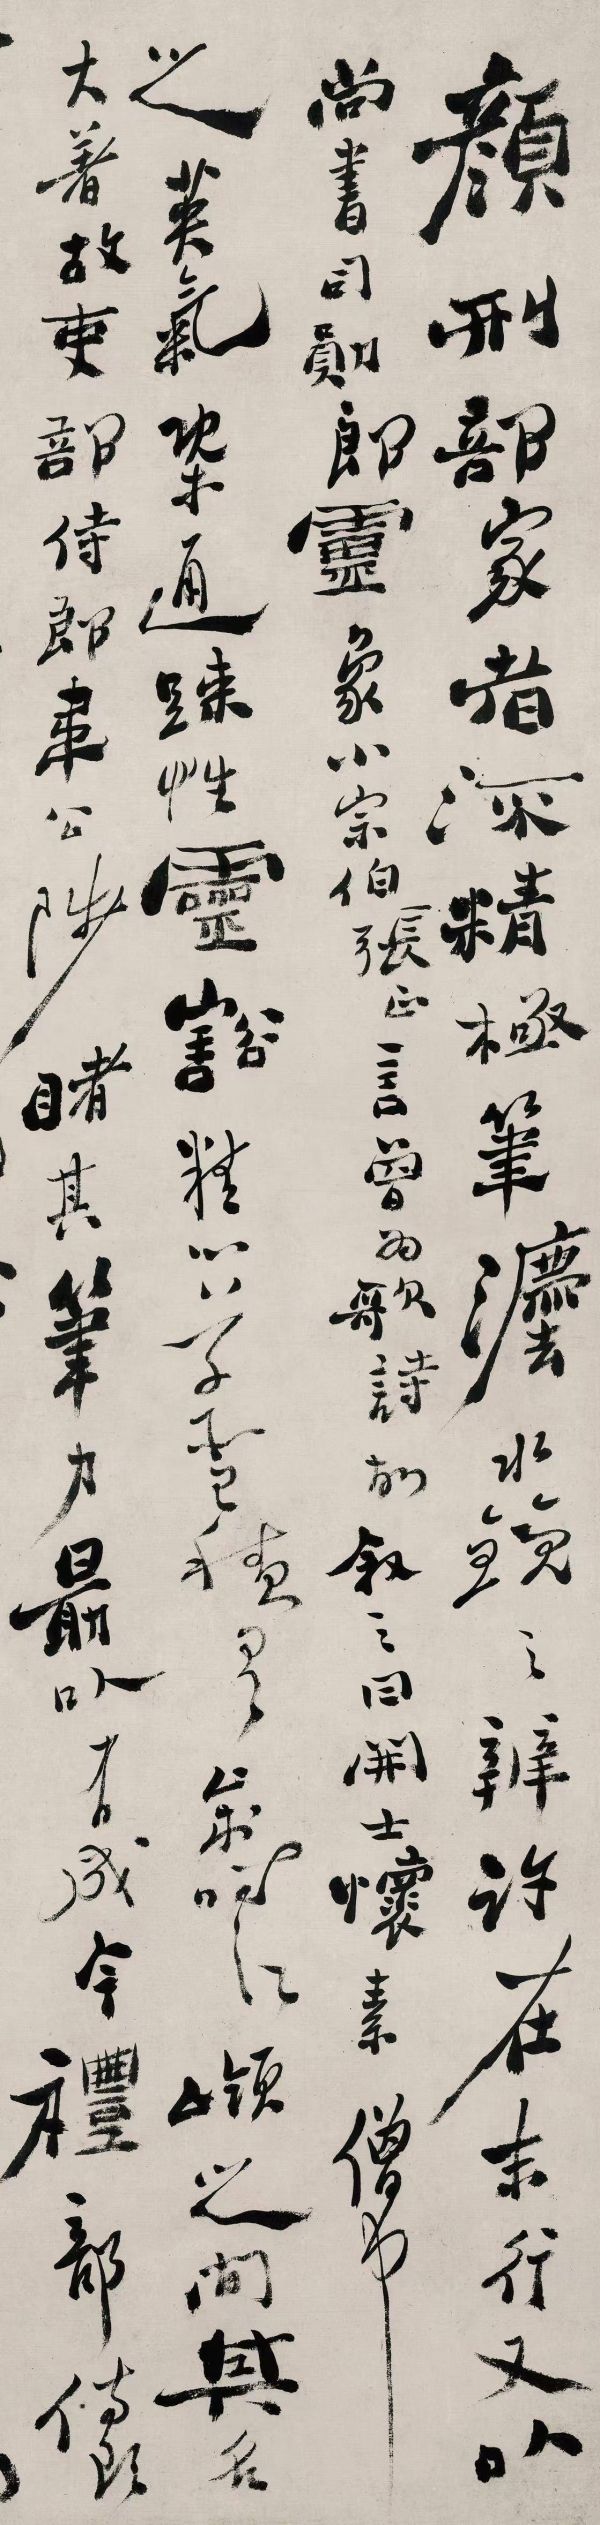 顏刑部家者流精極筆灋水鏡之辨許在末行又以
尚書司勛郎靈象小宗伯張正言曾為歌詩故敘之曰開士懷素僧中
之英氣槩通踈性靈豁精心草聖積有歲時江嶺之間其名
大著故吏部侍郎韋公陟睹其筆力勗以有成今禮部侍郎